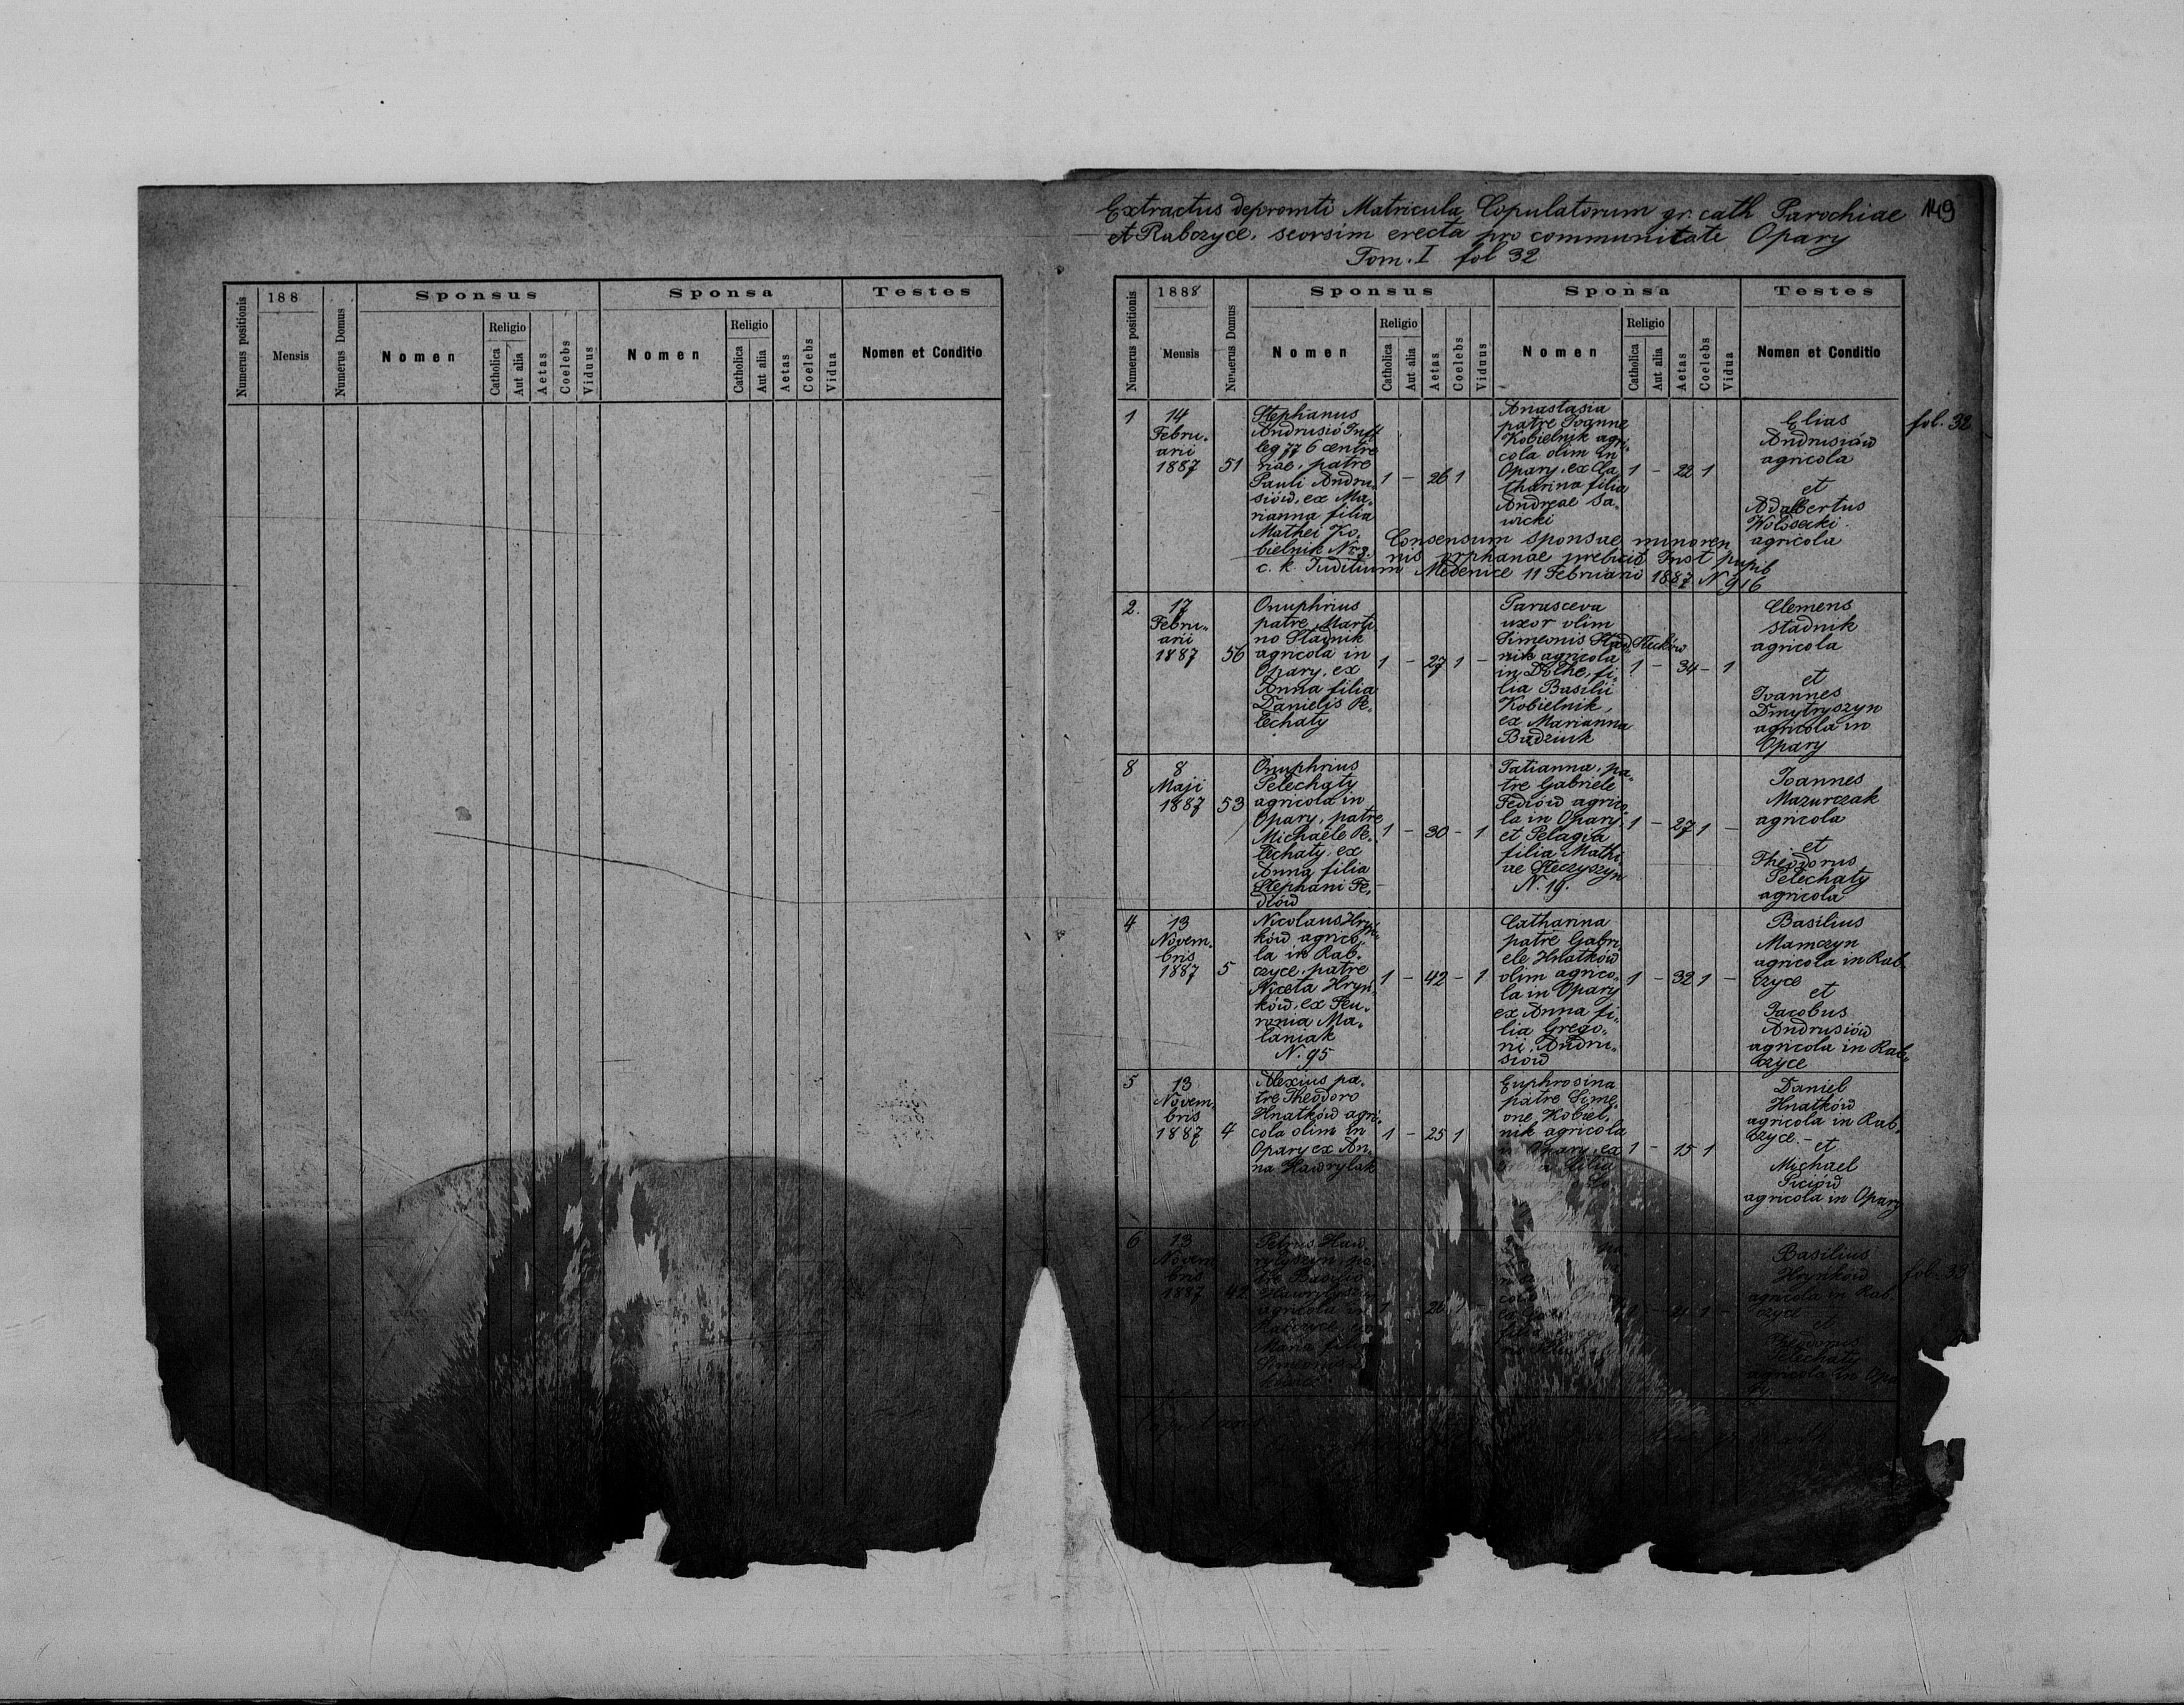 Extractus depromti Matricula Copulatorum gr. cath Parochiae 149
et Rabczyce, seorsim erecta pro communitate Opary
Tom. I fol 32
Numerus positionis
188
Mensis
Numerus Domus
Sponsus
Nomen
Religio
Catholica
Aut alia
Aetas
Coelebs
Viduus
Sponsa
Nomen
Religio
Catholica
Aut alia
Aetas
Coelebs
Vidua
Testes
Nomen et Conditio
Numerus positionis
1888
Mensis
Numerus Domus
Sponsus
Nomen
Religio
Catholica
Aut alia
Aetas
Coelebs
Viduus
Sponsa
Nomen
Religio
Catholica
Aut alia
Aetas
Coelebs
Vidua
Testes
Nomen et Conditio
1
14
Febru-
arii
1887
51
Stephanus
Andrusió Inft
leg 77 6 centu
riae, patre
Pauli Andru-
siów, ex Ma-
rianna filia
Mathei Ko-
bielnik
1 - 26 1
Anastasia
patre Joanne
Kobielnik agri-
cola olim in
Opary, ex Ca
tharina filia
Andreae Sa-
wicki
1 - 22 1
Elias
Andrusiów
agricola
et
Adalbertus
Wołosecki
agricola
fol. 32
Consensum sponsae minoren
nis orphanae prebuit Inst pupil
c. k. Juditium Medenice 11 Februario 1887 N 916
2.
17
Febru-
arii
1887
56
Onuphrius
patre Marti
no Stadnik
agricola in
Opary, ex
Anna filia
Danielis Pe-
lechaty
1 - 27 1 -
Parasceva
uxor olim
Simeonis Stad
nik agricola
in Dołhe, fi-
lia Basilii
Kobielnik,
ex Marianna
Budziuk
1 - 34 - 1
Clemens
Stadnik
agricola
et
Joannes
Dmytryszyn
agricola in
Opary
8
8
Maji
1887
53
Onuphrius
Pelechaty
agricola in
Opary, patre
Michaele Pe-
lechaty ex
Anna filia
Stephani Fe-
diów
1 - 30 - 1
Tatianna, pa-
tre Gabriele
Fediów agrico-
la in Opary
et Pelagia
filia Mathi
ae Steczyszyn
N. 19.
1 - 27 1 -
Joannes
Mazurczak
agricola
et
Theodorus
Pelechaty
agricola
4
13
Novem-
bris
1887
5
Nicolaus Hryń-
ków agrico-
la in Rab-
czyce, patre
Niceta Hryń-
ków, ex Feu-
ronia Ma-
laniak
N. 95
1 - 42 - 1
Catharina
patre Gabri-
ele Hnatków
olim agrico-
la in Opary
ex Anna fi-
lia Grego-
rii Andru-
siów
1 - 32 1 -
Basilius
Mamczyn
agricola in Rab-
czyce
et
Jacobus
Andrusiów
agricola in Rab-
czyce
5
13
Novem-
bris
1887
4
Alexius pa-
tre Theodoro
Hnatków agri-
cola olim in
Opary ex An-
na Hawrylak
1 - 25 1
Euphrosina
patre Sime-
one Kobiel-
nik agricola
in Opary, ex
filia
1 - 15 1
Daniel
Hnatków
agricola in Rab-
czyce. -
et
Michael
Siciów
agricola in Opary
6
13
Novem
bris
1887
42
Petrus Haw
rylyszyn, pa-
tre Basilio
Hawrylyszyn
agricola in
Rabczyce, ex
Maria filia
Simeonis
1 - 26 1 -
- 21 1 -
Basilius
Hryńków
agricola in Rab
czyce
et
Theodorus
Pelechaty
agricola in Opa
ry
fol. 33